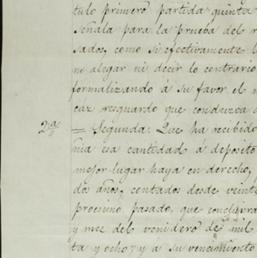 tulo primero partida quinta
señala para la prueba del r
sados, como si efectivamente l
no alegar ni decir lo contrario
formalizando á su favor el m
caz resguardo que conduzca
2ª = Segunda: Que ha recibido
nia esa cantidad á deposito
mejor lugar haya en derecho,
dos años, contados desde veint
procsimo pasado, que concluira
y mes del venidero de mil
ta y ocho; y á su vencimiento